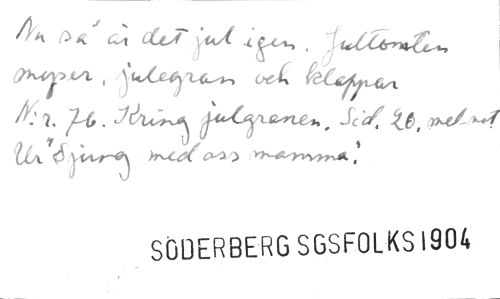 Nu så är det jul igen. Jultomten
myser, julegran och klappar
N:r. 76. Kring julgranen. Sid. 20. mel. not
Ur "Sjung med oss mamma".
SÖDERBERG SGSFOLKS1904